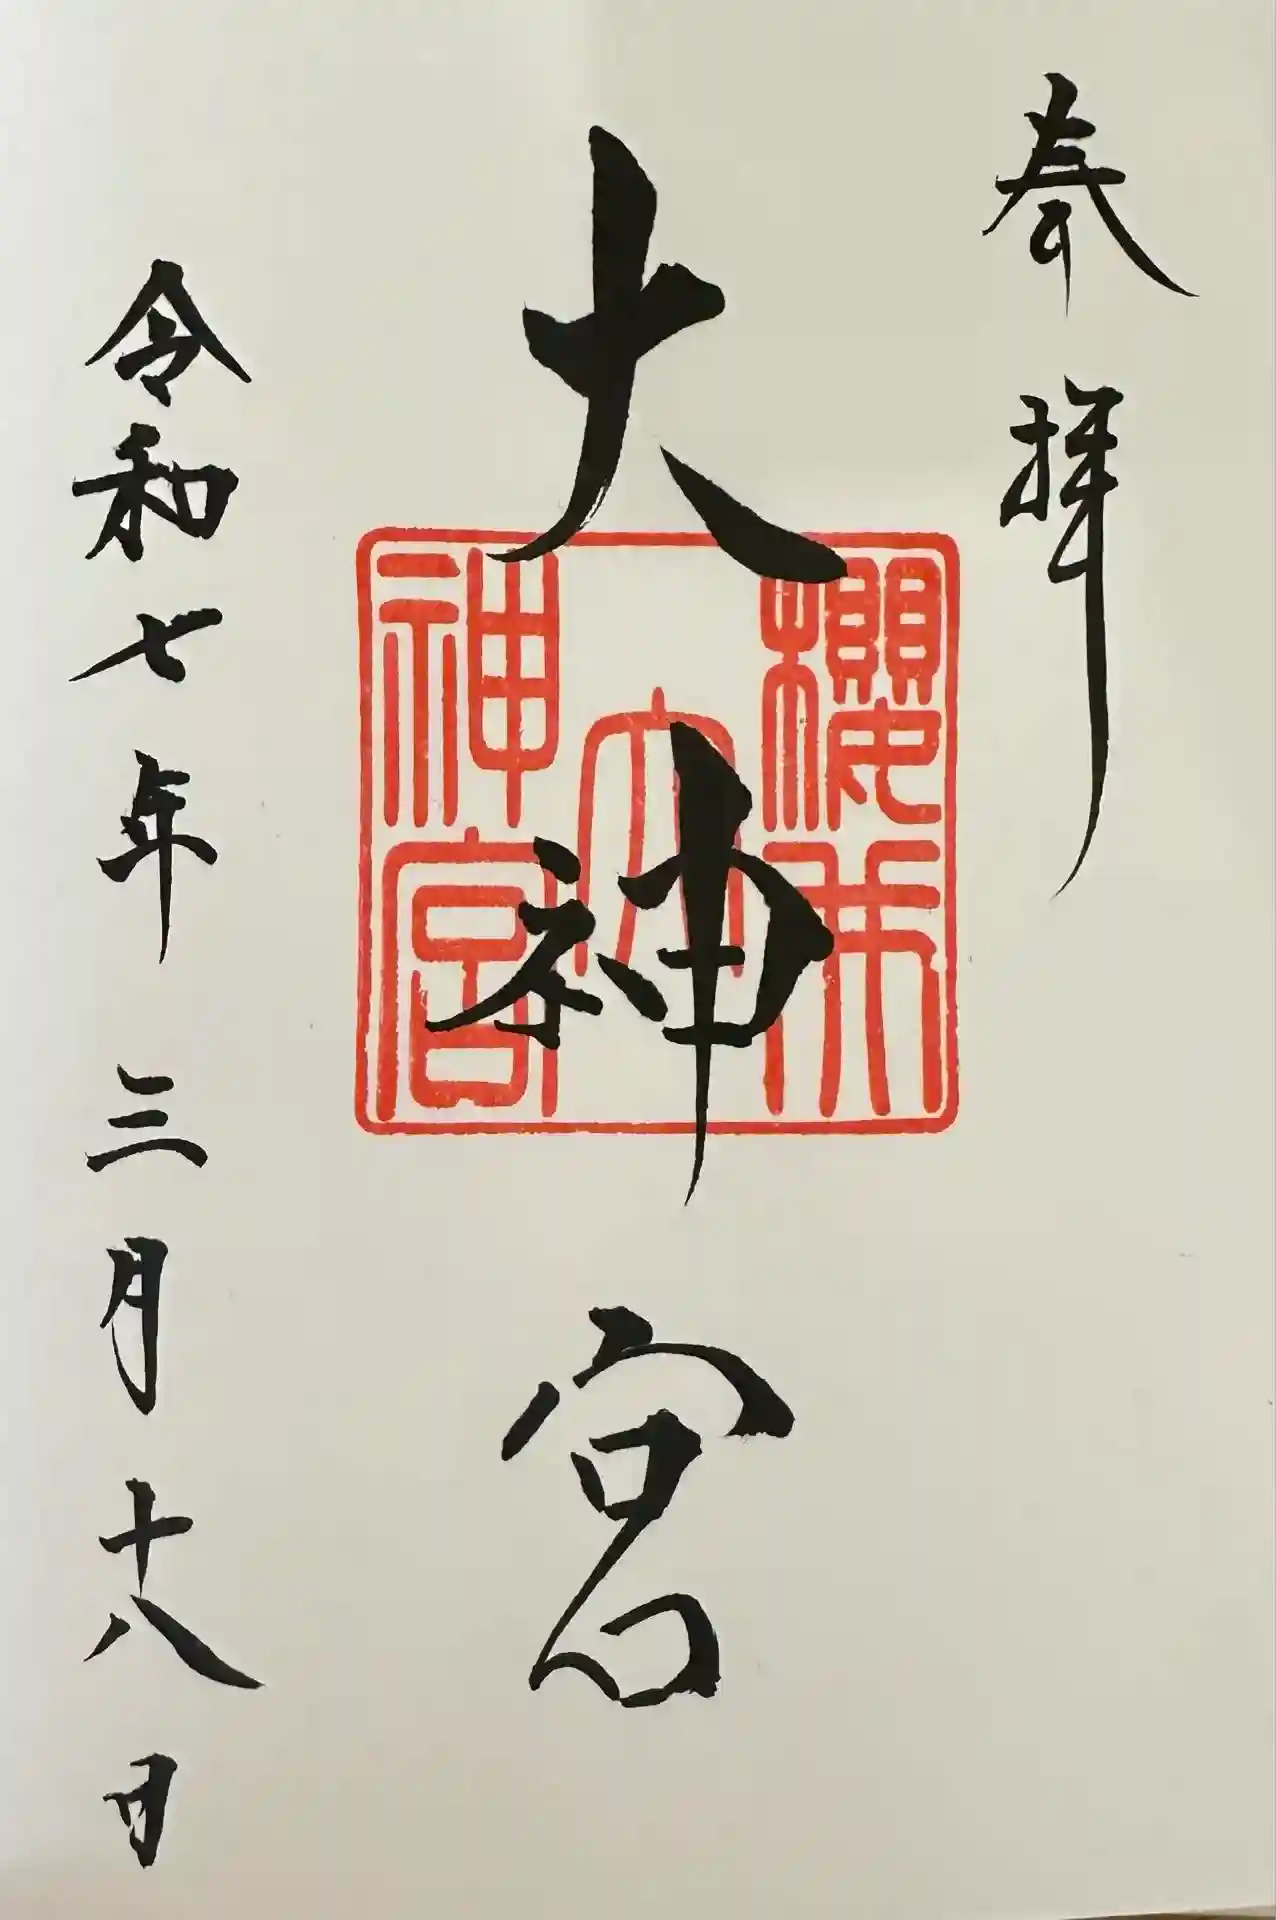 奉拝
大神宮
櫻
大
神宮
令和七年三月十八日